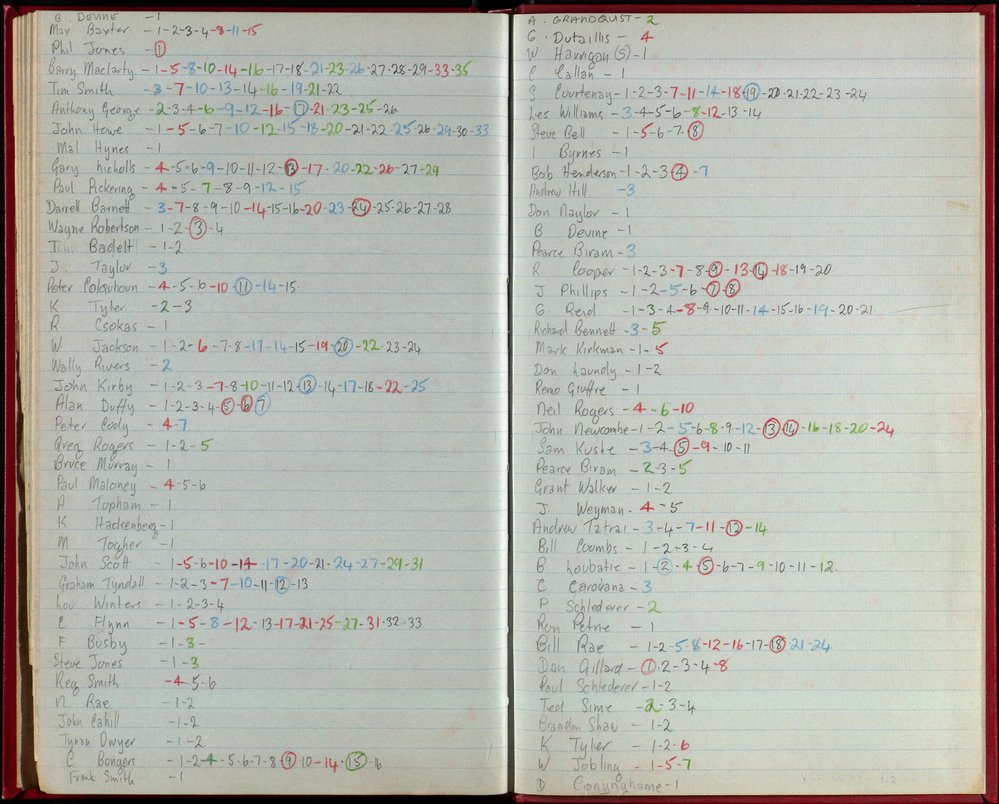 B. DEVINE -1
Max Baxter -1-2-3-4-8-11-15
Phil Jones -1
Barry Maclarty -1-5-8-10-14-16-17-18-21-23-26-27-28-29-33-35
Tim Smith -3-7-10-13-14-16-19-21-22
Anthony George -2-3-4-6-9-12-16-17-21-23-25-26
John Howe -1-5-6-7-10-12-15-18-20-21-22-25-26-29-30-33
Mal Hynes -1
Gary Nicholls -4-5-6-9-10-11-12-13-17-20-22-26-27-29
Paul Pickering -4-5-7-8-9-12-15
Darrell Barnett -3-7-8-9-10-14-15-16-20-23-24-25-26-27-28
Wayne Robertson -1-2-3-4
Badelt -1-2
J. Taylor -3
Peter Colquhoun -4-5-10-10-11-14-15.
K Tyler -2-3
R Csokas -1
W Jackson -1-2-6-7-8-11-14-15-19-20-22-23-24
Wally Rivers -2
John Kirby -1-2-3-7-8-10-11-12-13-14-17-18-22-25
Alan Duffy -1-2-3-4-5-6-7
Peter Cody -4-7
Greg Rogers -1-2-5
Bruce Murray -1
Paul Maloney -4-5-6
P Topham -1
K Hadsenberg -1
M Togher -1
John Scott -1-5-6-10-14-17-20-21-24-27-29-31
Graham Tyndall -1-2-3-7-10-11-12-13
Lou Winters -1-2-3-4
E Flynn -1-5-8-12-13-17-21-25-27-31-32-33
F Busby -1-3-
Steve Jones -1-3
Reg Smith -4-5-6
N Rae -1-2
John Cahill -1-2
Tynan Dwyer -1-2
C Bongers -1-2-4-5-6-7-8-9-10-14-15-16
Frank Smith -1
A. GRANDQUIST -2
G. Dutaillis -4
W Harrigan (S) -1
C Callan -1
S Courtenay -1-2-3-7-11-14-18-19-20-21-22-23-24
Les Williams -3-4-5-6-8-12-13-14
Steve Bell -1-5-6-7-8
I Byrnes -1
Bob Henderson -1-2-3-4-7
Andrew Hill -3
Don Naylor -1
B Devine -1
Pearce Biram -3
R Cooper -1-2-3-7-8-9-13-14-18-19-20
J Phillips -1-2-5-6-7-8
G. Reid -1-3-4-8-9-10-11-14-15-16-19-20-21
Richard Bennett -3-5
Mark Kirkman -1-5
Don Laundy -1-2
Remo Giuffre -1
Neil Rogers -4-6-10
John Newcombe -1-2-5-6-8-9-12-13-14-16-18-20-24
Sam Kushe -3-4-5-9-10-11
Pearce Biram -2-3-5
Grant Walker -1-2
J. Weyman -4-5
Andrew Tatrai -3-4-7-11-12-14
Bill Coombs -1-2-3-4
B Loubatie -1-2-4-5-6-7-9-10-11-12.
C Caruana -3
P Schlederer -2
Ron Petrie -1
Bill Rae -1-2-5-8-12-16-17-18-21-24
Dan Gillard -1-2-3-4-8
Paul Schlederer -1-2
Ted Sime -2-3-4
Brandon Shaw -1-2
K Tyler -1-2-6
W Jobling -1-5-7
D Conynghame -1